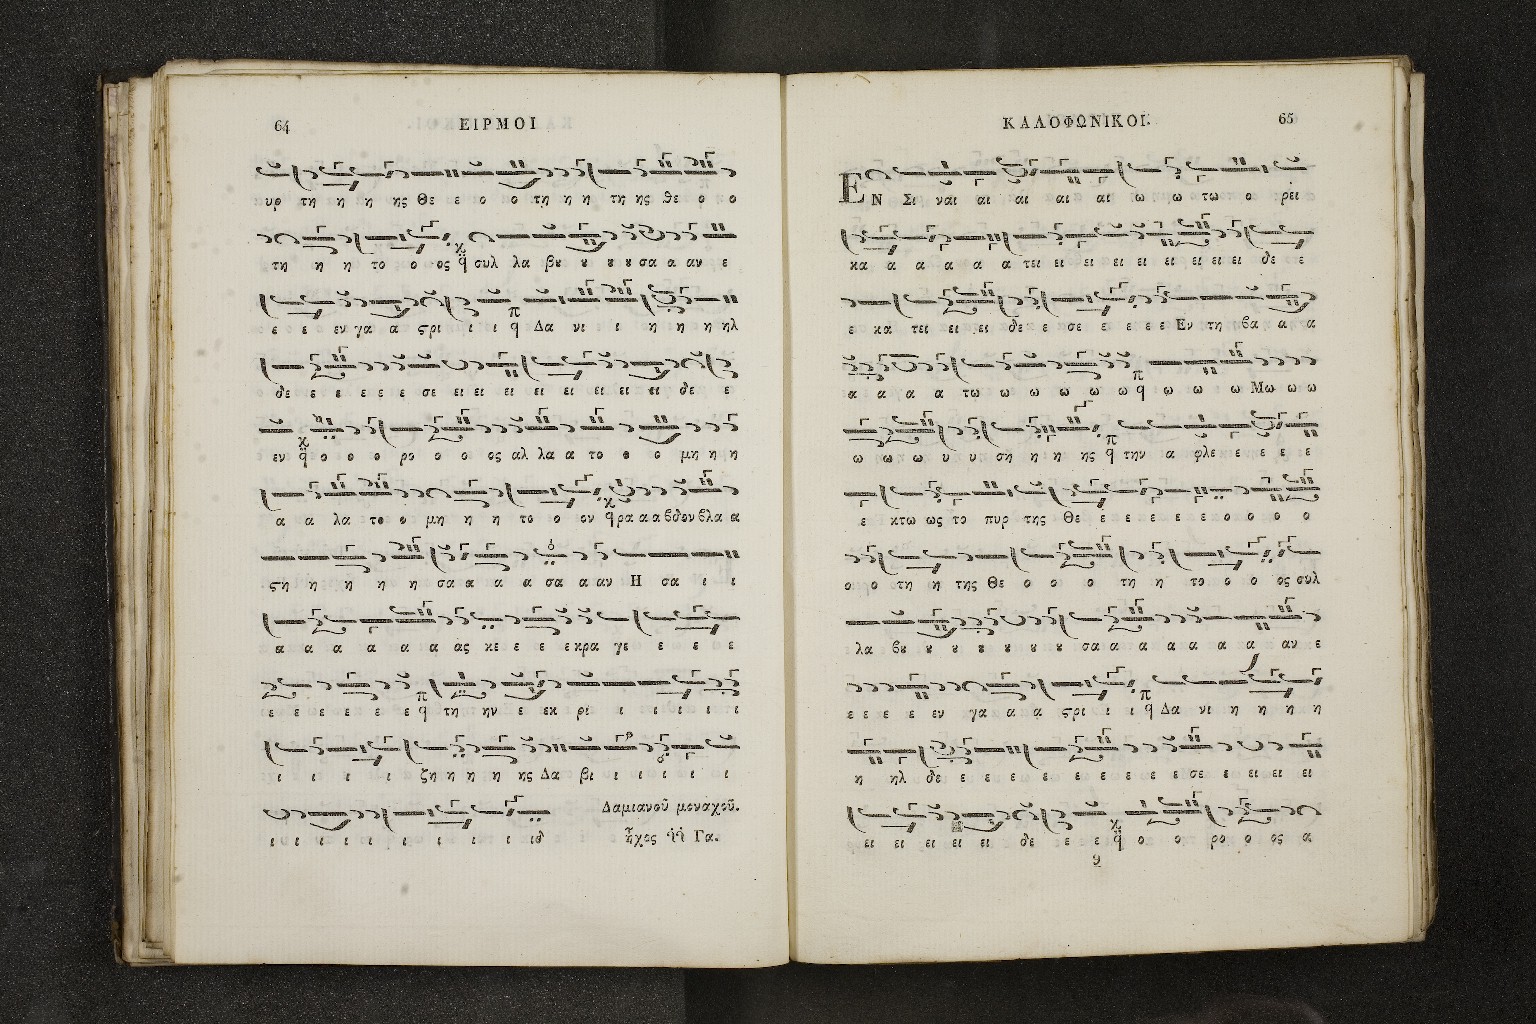 64 ΕΙΡΜΟΙ
υρ τη η η ης Θε ε ο ο τη η η της ης θε ο ο
τη η η το ο ος συλ λα βȣ ȣ ȣ ȣ σα α αν ε
ε ε εν γα α ϛρι ι ι Δα νι ι η η η ηλ
δε ε ε ε ε ε σε ει ει ει ει ει ει ει ει δε ε
εν ο ο ο ρο ο ο ος αλ λα α το ο ο μη η η
α α λα το ο μη η η το ο ον ρα α α βδον βλα α
ϛη η η η η η σα α α α σα α αν Η σα ι ι
α α α α α α ας κε ε ε ε κρα γε ε ε ε
ε ε ε ε ε ε τη ην ε εκ ρι ι ι ι ι ι
ι ι ι ι ι ζη η η η ης Δα βι ι ι ι ι ι
Δαμιανοῦ μοναχοῦ.
ι ι ι ι ι ι ι ι ι ι ιδ
ἦχος Γα.
ΚΑΛΟΦΩΝΙΚΟΙ. 65
ΕΝ Σι ναι αι αι αι αι ω ω τω ο ρει
κα α α α α α τει ει ει ει ει ει ει ει ει δε ε
ε κα τει ει ει δε ε σε ε ε ε ε Εν τη βα α α
α α α α τω ω ω ω ω ω ω ω ω Μω ω ω
ω ω ω υ υ ση η η ης την α φλε ε ε ε ε
ε κτω ως το πυρ της Θε ε ε ε ε ε ο ο ο ο
ο ο τη η της Θε ο ο ο τη η το ο ο ος συλ
λα βȣ ȣ ȣ ȣ ȣ ȣ ȣ σα α α α α α α αν ε
ε ε ε ε εν γα α α ϛρι ι ι Δα νι η η η η
η ηλ δε ε ε ε ε ε ε ε ε σε ε ει ει ει
ει ει ει ει ει δε ε ε ο ο ρο ο ος α
9